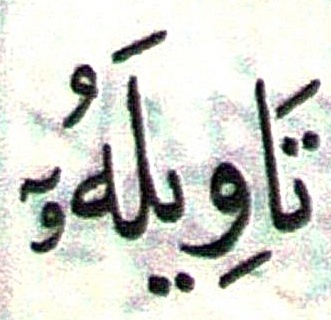 تَاوِيلَهُۥٓ